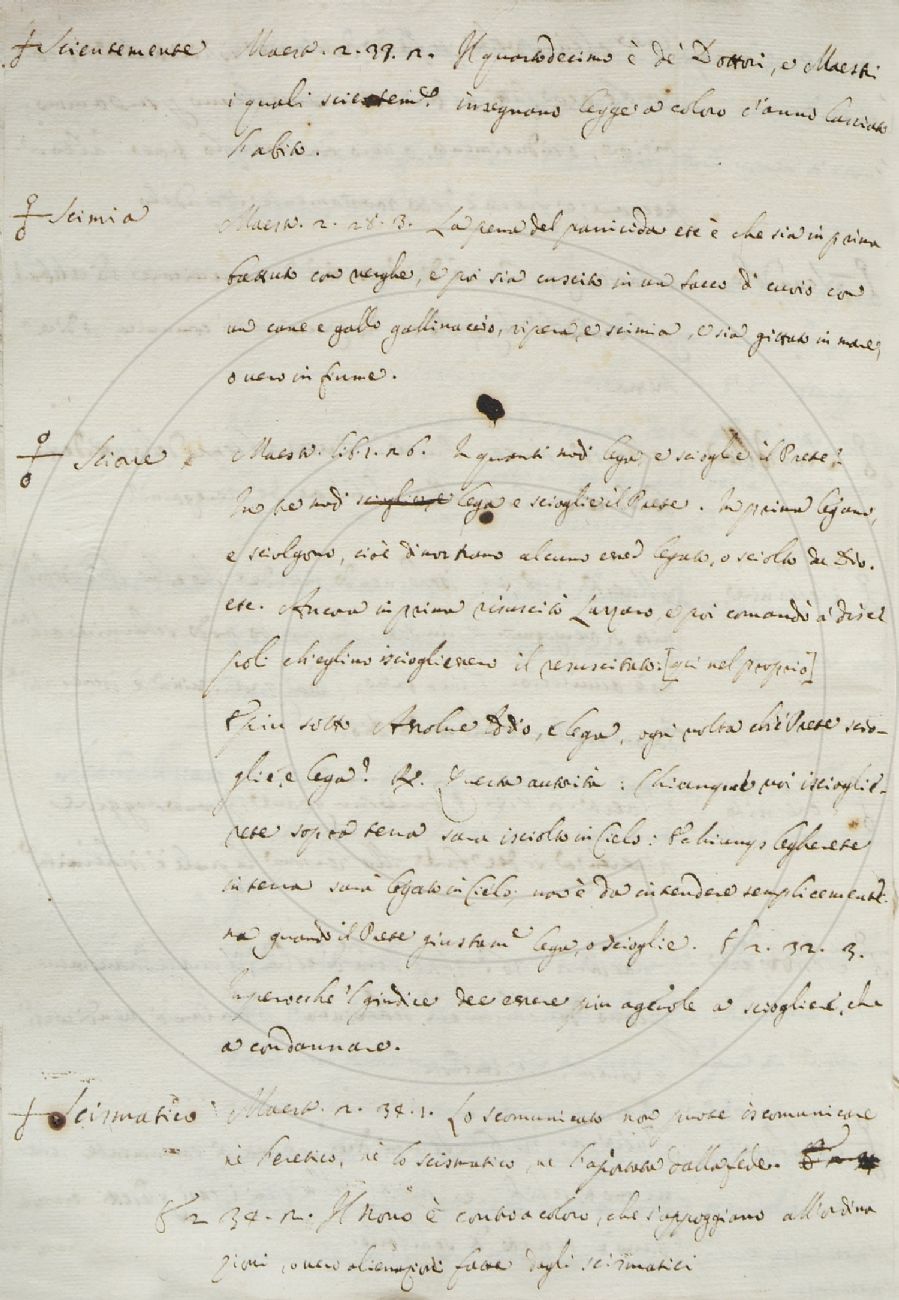 Scientemente Maest. 2. 37. 2. Il quartodecimo è de' Dottori, e Maestri
i quali scientem.e insegnano legge a coloro c'anno lasciato
l'abito.
Scimia Maest. 2. 28. 3. La pena del parricida etc è che sia in prima
battuto con verghe, e poi sia cuscito in un sacco di cuoio con
un cane e gallo gallinaccio, vipera, e scimia, e sia gittato in mare,
o vero in fiume.
Sciorre Maest. lib. 2. 6. In quanti modi lega, e scioglie il Prete?
In tre modi sciogliere lega e scioglie il Prete. In prima legano,
e sciolgono, cioè dimostrano alcuno esser legato, o sciolto da Dio.
etc. Ancora in prima risuscitò Lazzaro, e poi comandò a' disce
poli ch'eglino iscogliessero il resuscitato: [qui nel proprio]
E più sotto Assolve Iddio, e lega, ogni volta che 'l Prete scio-
glie, e lega? R. Questa autorità: Chiunque voi isciogliе-
rete sopra terra sarà isciolto in Cielo: E chiunq legherete
in terra sarà legato in Cielo; non è da intendere semplicemente.
ma quando il Prete giustam.e lega, o scioglie. E 2. 32. 3.
Imperocchè 'l giudice dee essere più agevole a sciogliere, che
a condannare.
Scismatico Maest. 2. 34. 1. Lo scomunicato non puote iscomunicare
nè l'eretico, nè lo scismatico, ne l'apostata dalla fede.
E 2 34. 2. Il nono è contro a coloro, che s'appoggiano all'ordina
zioni, o vero alienazioni fatte dagli scismatici